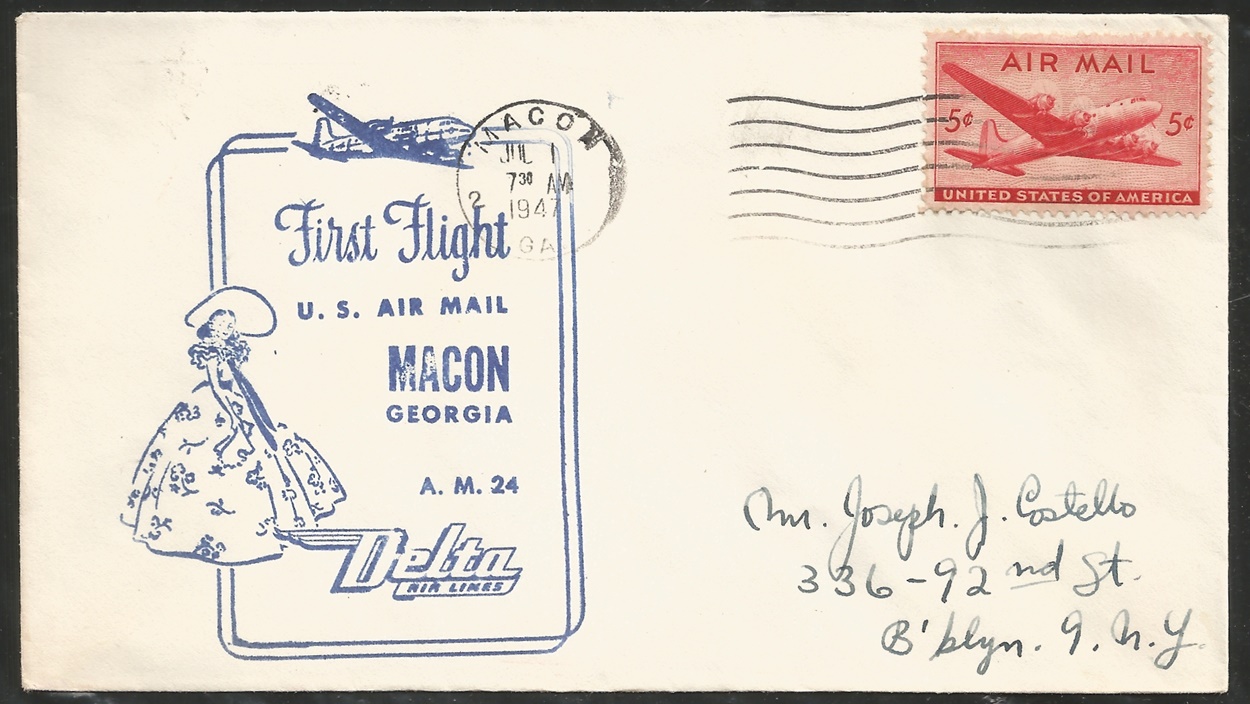 AIR MAIL
5¢ 5¢
UNITED STATES OF AMERICA
MACON
JUL 1
7 30 AM
2 1947
GA
First Flight
U. S. AIR MAIL
MACON
GEORGIA
A. M. 24
Delta
AIR LINES
Mr. Joseph. J. Costello
336-92 nd St.
B'klyn. 9. N. Y.